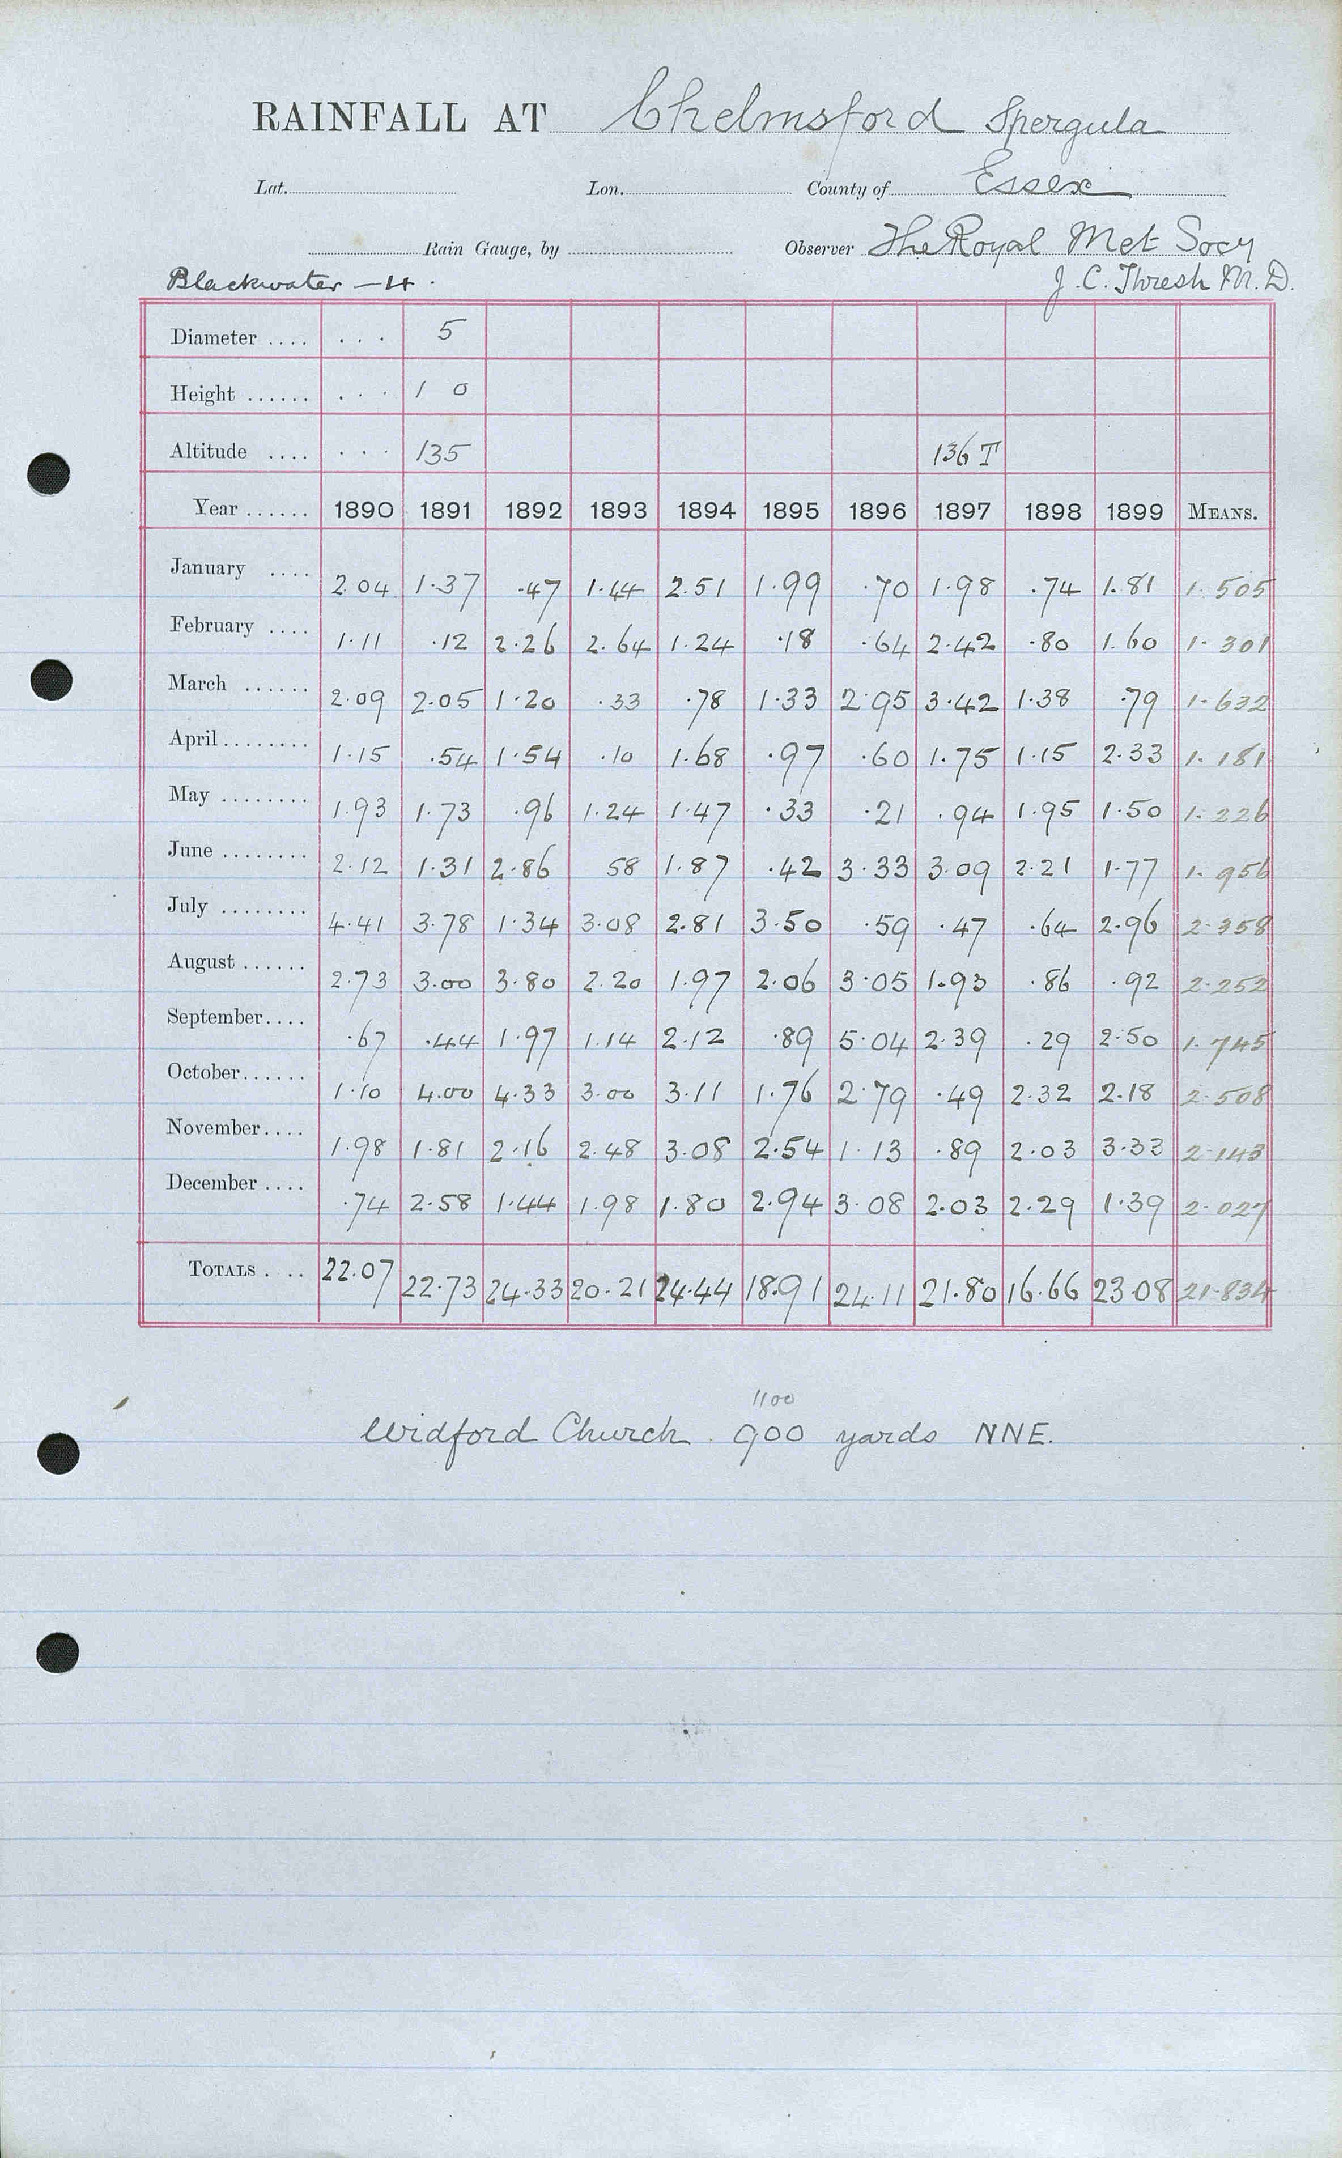 RAINFALL AT Chelmsford Spergula
Lat. Lon. County of Essex
Rain Gauge, by Observer The Royal Met Socy
Blackwater – 4. J. C. Thresh M.D.
Diameter .... . . . 5
Height ...... . . . 1 0
Altitude .... . . . 135 136 T
Year ...... 1890 1891 1892 1893 1894 1895 1896 1897 1898 1899 MEANS.
January .... 2.04 1.37 .47 1.44 2.51 1.99 .70 1.98 .74 1.81 1.505
February .... 1.11 .12 2.26 2.64 1.24 .18 .64 2.42 .80 1.60 1.301
March ...... 2.09 2.05 1.20 .33 .78 1.33 2.95 3.42 1.38 .79 1.632
April........ 1.15 .54 1.54 .10 1.68 .97 .60 1.75 1.15 2.33 1.181
May ........ 1.93 1.73 .96 1.24 1.47 .33 .21 .94 1.95 1.50 1.226
June ........ 2.12 1.31 2.86 58 1.87 .42 3.33 3.09 2.21 1.77 1.956
July ........ 4.41 3.78 1.34 3.08 2.81 3.50 .59 .47 .64 2.96 2.358
August ...... 2.73 3.00 3.80 2.20 1.97 2.06 3.05 1.93 .86 .92 2.252
September.... .67 .44 1.97 1.14 2.12 .89 5.04 2.39 .29 2.50 1.745
October...... 1.10 4.00 4.33 3.00 3.11 1.76 2.79 .49 2.32 2.18 2.508
November.... 1.98 1.81 2.16 2.48 3.08 2.54 1.13 .89 2.03 3.33 2.143
December .... .74 2.58 1.44 1.98 1.80 2.94 3.08 2.03 2.29 1.39 2.027
TOTALS .... 22.07 22.73 24.33 20.21 24.44 18.91 24.11 21.80 16.66 23.08 21.834
1100
Widford Church . 900 yards NNE.